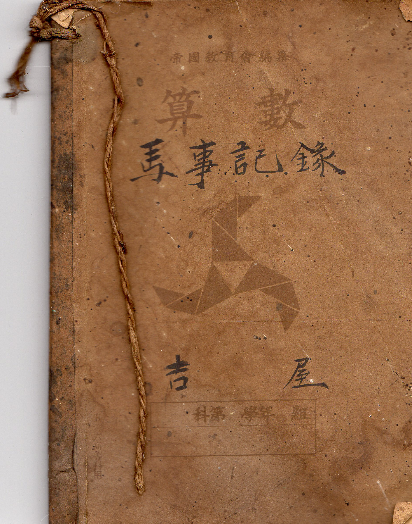 帝國教育會編纂
算數
馬事記錄
吉屋
科第 學年 組